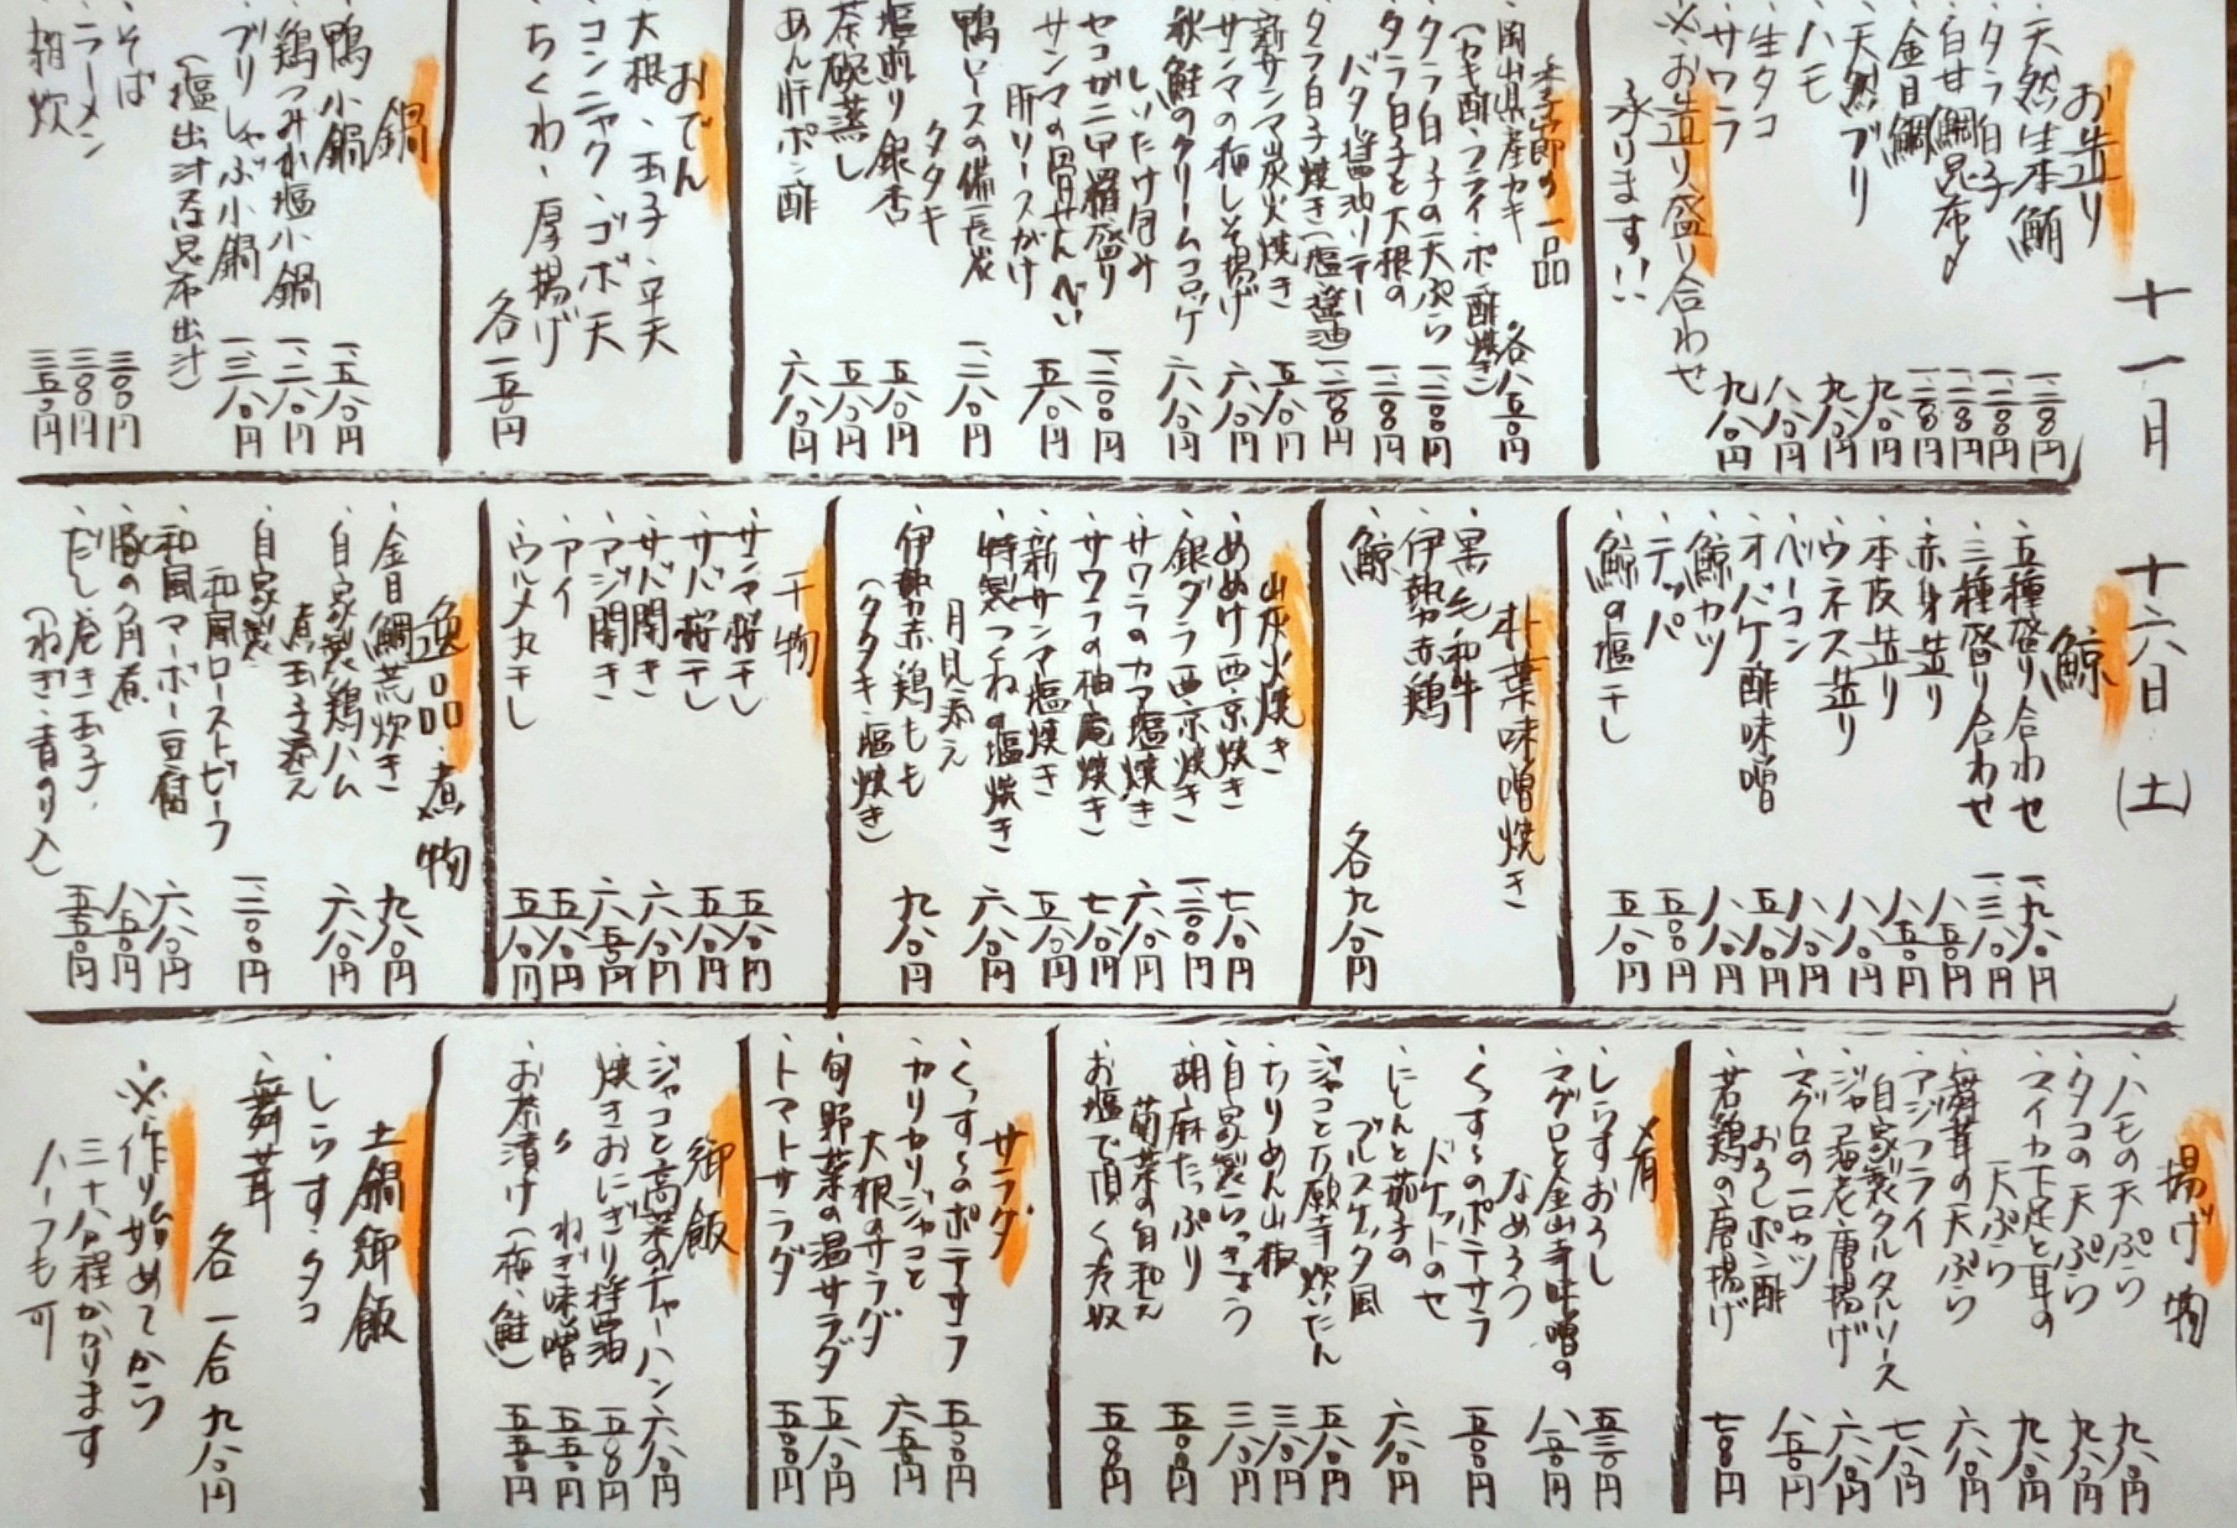 十一月 十六日 (土)
お造り
・天然生本鮪 一、二八〇円
・タラ白子 一、二八〇円
・白甘鯛昆布〆 一、二八〇円
・金目鯛 一、二八〇円
・天然ブリ 九八〇円
・ハモ 九八〇円
・生タコ 八八〇円
・サワラ 九八〇円
※お造り盛り合わせ
承ります!!
季節の一品
・岡山県産カキ 各八五〇円
(カキ酢・フライ・ポン酢焼き)
・タラ白子の天ぷら 一、二八〇円
・タラ白子と大根の
バター醤油ソテー 一、二八〇円
・タラ白子焼き(塩・醤油) 一、二八〇円
・新サンマ炭火焼き 五八〇円
・サンマの梅しそ揚げ 六八〇円
・秋鮭のクリームコロッケ 六八〇円
しいたけ包み
・セコガニ甲羅盛り 一、二〇〇円
・サンマの骨せんべい
肝ソースがけ 五八〇円
・鴨ロースの備長炭
タタキ 一、二八〇円
・塩煎り銀杏 五八〇円
・茶碗蒸し 五八〇円
・あん肝ポン酢 六八〇円
おでん
・大根・玉子・平天
コンニャク・ゴボ天
ちくわ・厚揚げ
各一五〇円
鍋
・鴨小鍋 一、五八〇円
・鶏つみれ塩小鍋 一、二八〇円
・ブリしゃぶ小鍋 一、三八〇円
(塩出汁 昆布出汁)
・そば 三〇〇円
・ラーメン 三〇〇円
・雑炊 三五〇円
鯨
・五種盛り合わせ 一、九八〇円
・三種盛り合わせ 一、三八〇円
・赤身造り 八五〇円
・本皮造り 八五〇円
・ウネス造り 八八〇円
・ベーコン 八八〇円
・オバケ酢味噌 五八〇円
・鯨カツ 八八〇円
・テッパ 五〇〇円
・鯨の塩干し 五八〇円
朴葉味噌焼き
・黒毛和牛
・伊勢赤鶏
・鯨
各九八〇円
炭火焼き
・めぬけ西京焼き 七八〇円
・銀ダラ西京焼き 一、三〇〇円
・サワラのカマ塩焼き 六八〇円
・サワラの柚庵焼き 七八〇円
・新サンマ塩焼き 五八〇円
・特製つくねの塩焼き 六八〇円
月見添え
・伊勢赤鶏もも 九八〇円
(タタキ・塩焼き)
干物
・サンマ桜干し 五八〇円
・サバ桜干し 五八〇円
・サバ開き 六八〇円
・アジ開き 六五〇円
・アイ 五八〇円
・ウルメ丸干し 五八〇円
逸品・煮物
・金目鯛荒炊き 九八〇円
・自家製鶏ハム 六八〇円
煮玉子添え
・自家製
和風ローストビーフ 一、二〇〇円
・和風マーボー豆腐 六八〇円
・豚の角煮 八五〇円
・だし巻き玉子 五五〇円
(ねぎ・青のり入)
揚げ物
・ハモの天ぷら 九八〇円
・タコの天ぷら 九八〇円
・スイカ下足と耳の
天ぷら 九八〇円
・舞茸の天ぷら 六八〇円
・アジフライ
自家製タルタルソース 七八〇円
・ジャコ海老唐揚げ 六八〇円
・マグロの一口カツ
おろしポン酢 八五〇円
・若鶏の唐揚げ 七八〇円
肴
・しらすおろし 五三〇円
・マグロと金山寺味噌の
なめろう 八五〇円
・くっすぅのポテサラ
バケットのせ 五五〇円
・にしんと茄子の
ブルスケッタ風 六八〇円
・ジャコと万願寺炊いたん 五八〇円
・ちりめん山椒 三八〇円
・自家製らっきょう 三八〇円
・胡麻たっぷり
菊菜の白和え 五五〇円
・お塩で頂く冷奴 五五〇円
サラダ
・くっすぅのポテサラ 五五〇円
・カリカリジャコと
大根のサラダ 六五〇円
・旬野菜の温サラダ 五八〇円
・トマトサラダ 五五〇円
御飯
・ジャコと高菜のチャーハン 六八〇円
・焼きおにぎり 醤油 五〇〇円
〃 ねぎ味噌 五五〇円
・お茶漬け(梅・鮭) 五五〇円
土鍋御飯
・しらす・タコ
・舞茸
各一合 九八〇円
※作り始めてから
三十分程かかります
ハーフも可